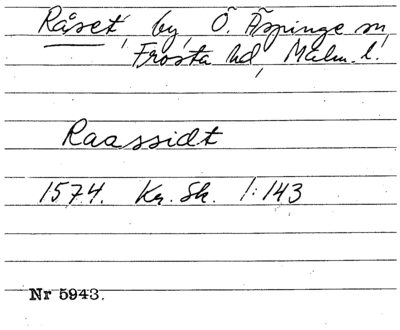 Råset, by, Ö. Äspinge sn,
Frosta hd, Malm. l.
Raassidt
1574. Kr. Sk. 1:143
Nr 5943.